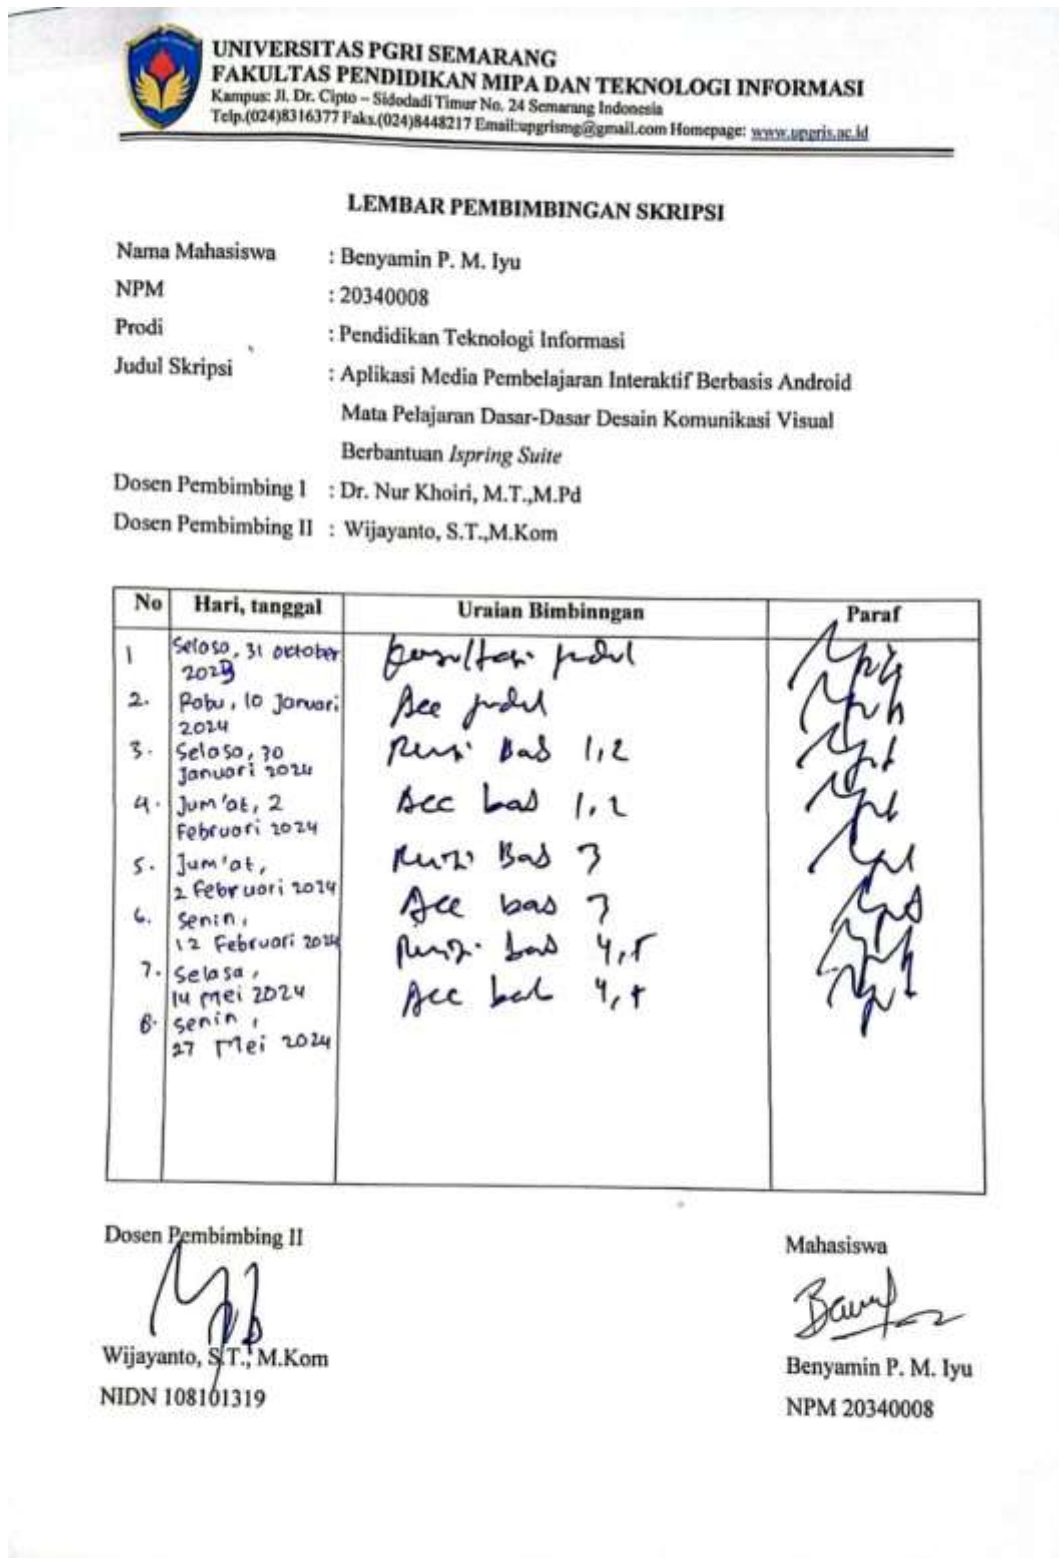 UNIVERSITAS PGRI SEMARANG
FAKULTAS PENDIDIKAN MIPA DAN TEKNOLOGI INFORMASI
Kampus: Jl. Dr. Cipto – Sidodadi Timur No. 24 Semarang Indonesia
Telp.(024)8316377 Faks.(024)8448217 Email:upgrismg@gmail.com Homepage: www.upgris.ac.id
LEMBAR PEMBIMBINGAN SKRIPSI
Nama Mahasiswa : Benyamin P. M. Iyu
NPM : 20340008
Prodi : Pendidikan Teknologi Informasi
Judul Skripsi : Aplikasi Media Pembelajaran Interaktif Berbasis Android
Mata Pelajaran Dasar-Dasar Desain Komunikasi Visual
Berbantuan Ispring Suite
Dosen Pembimbing I : Dr. Nur Khoiri, M.T.,M.Pd
Dosen Pembimbing II : Wijayanto, S.T.,M.Kom
No Hari, tanggal Uraian Bimbinngan Paraf
1 Selasa, 31 oktober konsultasi judul
2023
2. Rabu, 10 Januari Acc judul
2024
3. Selasa, 30 Revisi Bab 1,2
Januari 2024
4. Jum'at, 2 Acc bab 1,2
Februari 2024
5. Jum'at, Revisi Bab 3
2 Februari 2024
6. Senin, Acc bab 3
12 Februari 2024 Revisi bab 4,5
7. Selasa,
14 Mei 2024 Acc bab 4,5
8. Senin,
27 Mei 2024
Dosen Pembimbing II
Mahasiswa
Wijayanto, S.T., M.Kom
NIDN 108101319
Benyamin P. M. Iyu
NPM 20340008